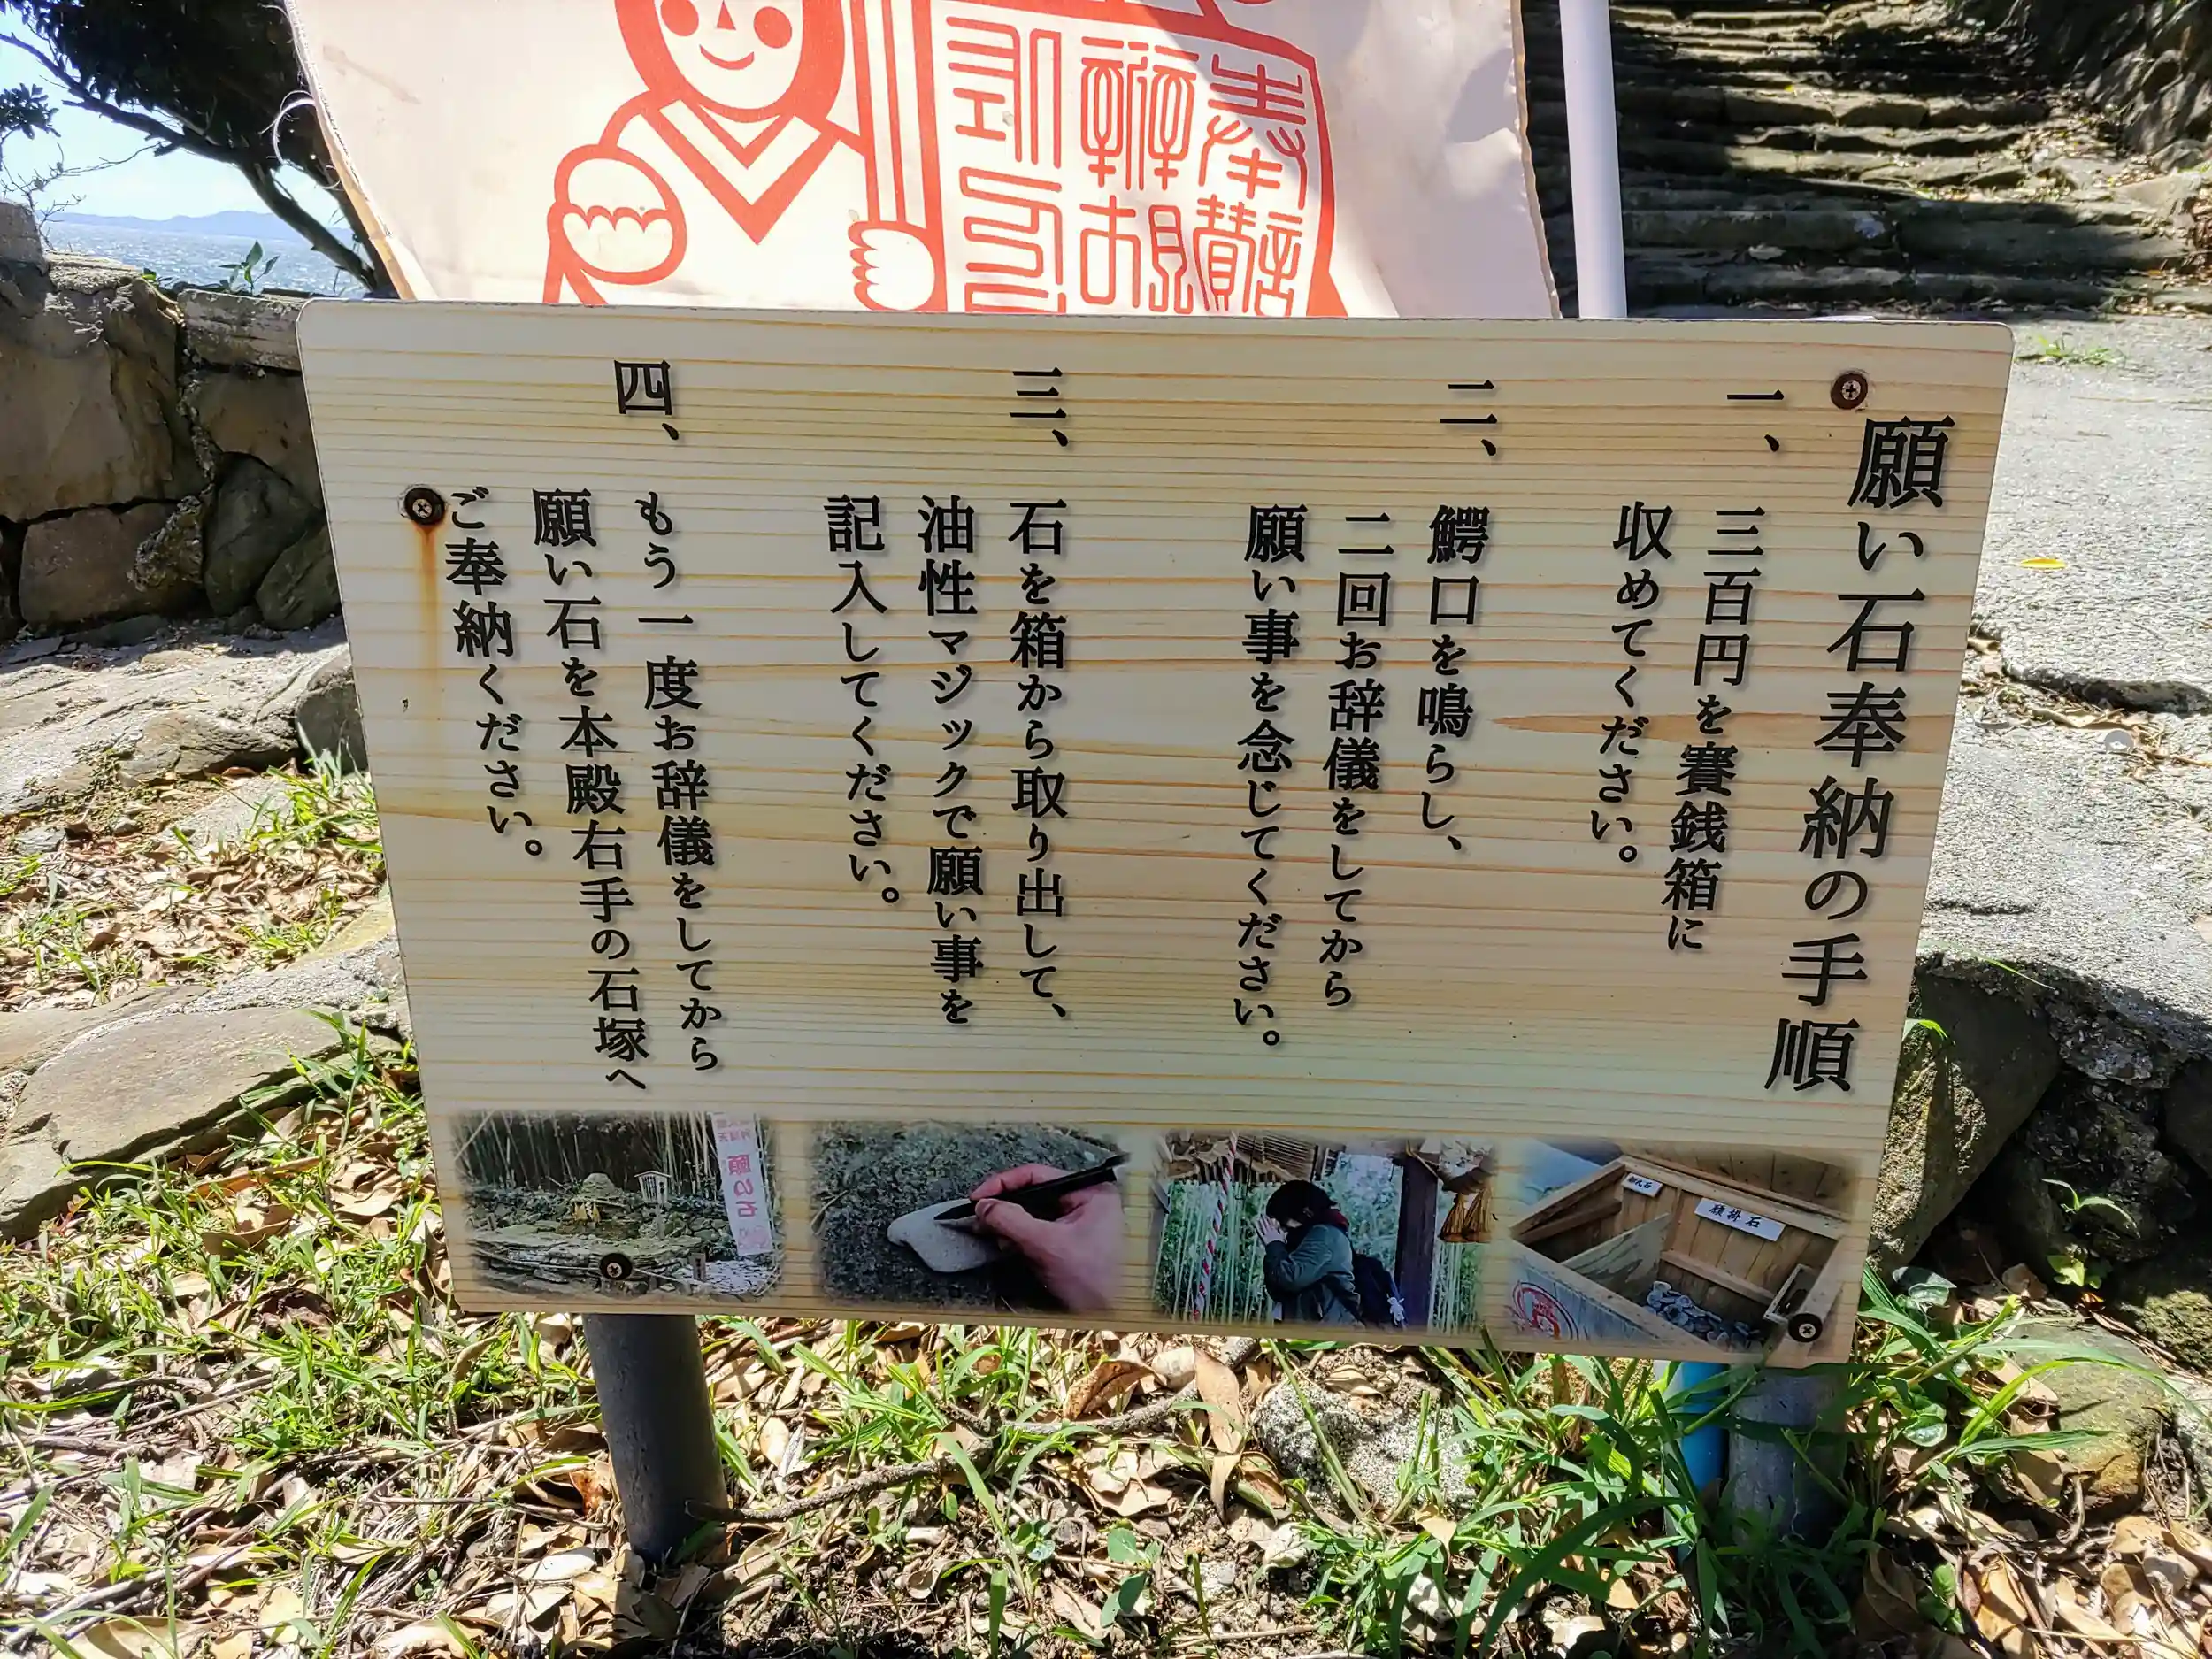 願い石奉納の手順
一、
三百円を賽銭箱に
収めてください。
二、
鰐口を鳴らし、
二回お辞儀をしてから
願い事を念じてください。
三、
石を箱から取り出して、
油性マジックで願い事を
記入してください。
四、
もう一度お辞儀をしてから
願い石を本殿右手の石塚へ
ご奉納ください。
願い石
願掛石